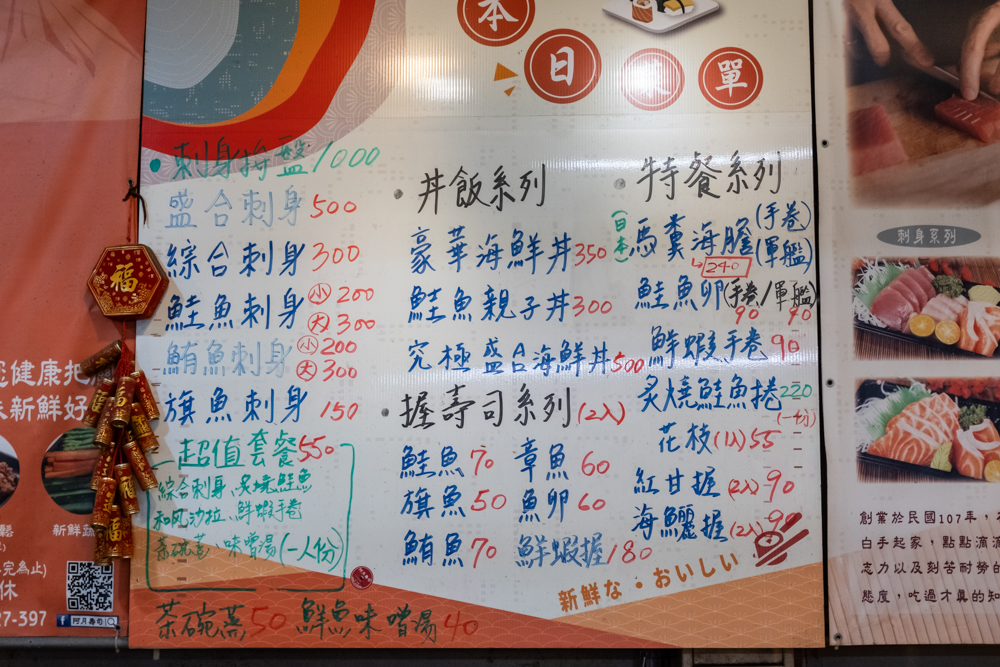 本日味單
刺身拚盤1000
盛合刺身500
綜合刺身300
鮭魚刺身 小200
大300
鮪魚刺身 小200
大300
旗魚刺身 150
超值套餐550
綜合刺身、炙燒鮭魚
和风沙拉、鮮蝦手卷
茶碗蒸、味噌湯(一人份)
茶碗蒸50 鮮魚味噌湯40
丼飯系列
豪華海鮮丼350
鮭魚親子丼300
究極盛合海鮮丼500
握壽司系列(2入)
鮭魚70 章魚60
旗魚50 魚卵60
鮪魚70 鮮蝦握180
特餐系列
(日本)馬糞海膽(手卷)
(軍艦)
240
鮭魚卵(手卷/軍艦)
90 90
鮮蝦手卷90
炙燒鮭魚捲220
(一份)
花枝(1入)55
紅甘握(2入)90
海鱺握(2入)90
新鮮な・おいしい
福
福
健康把
新鮮好
新鮮蔬
完為止)
休
27-397
阿月壽司
刺身系列
創業於民國107年，
白手起家，點點滴滴
志力以及刻苦耐勞的
態度，吃過才真的知